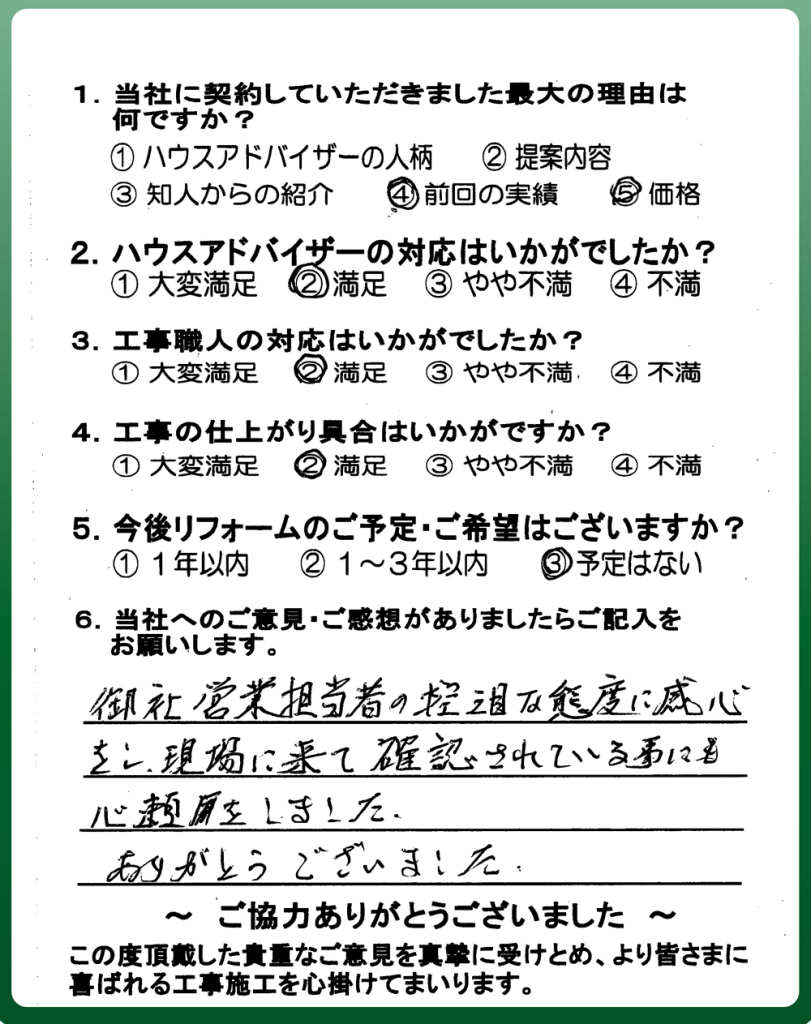 1. 当社に契約していただきました最大の理由は
何ですか？
① ハウスアドバイザーの人柄 ② 提案内容
③ 知人からの紹介 ④ 前回の実績 ⑤ 価格
2. ハウスアドバイザーの対応はいかがでしたか？
① 大変満足 ② 満足 ③ やや不満 ④ 不満
3. 工事職人の対応はいかがでしたか？
① 大変満足 ② 満足 ③ やや不満 ④ 不満
4. 工事の仕上がり具合はいかがですか？
① 大変満足 ② 満足 ③ やや不満 ④ 不満
5. 今後リフォームのご予定・ご希望はございますか？
① 1年以内 ② 1～3年以内 ③ 予定はない
6. 当社へのご意見・ご感想がありましたらご記入を
お願いします。
御社営業担当者の な態度に感心
をし、現場に来て確認されている事にも
心 をしました.
ありがとうございました.
～ ご協力ありがとうございました ～
この度頂戴した貴重なご意見を真摯に受けとめ、より皆さまに
喜ばれる工事施工を心掛けてまいります。